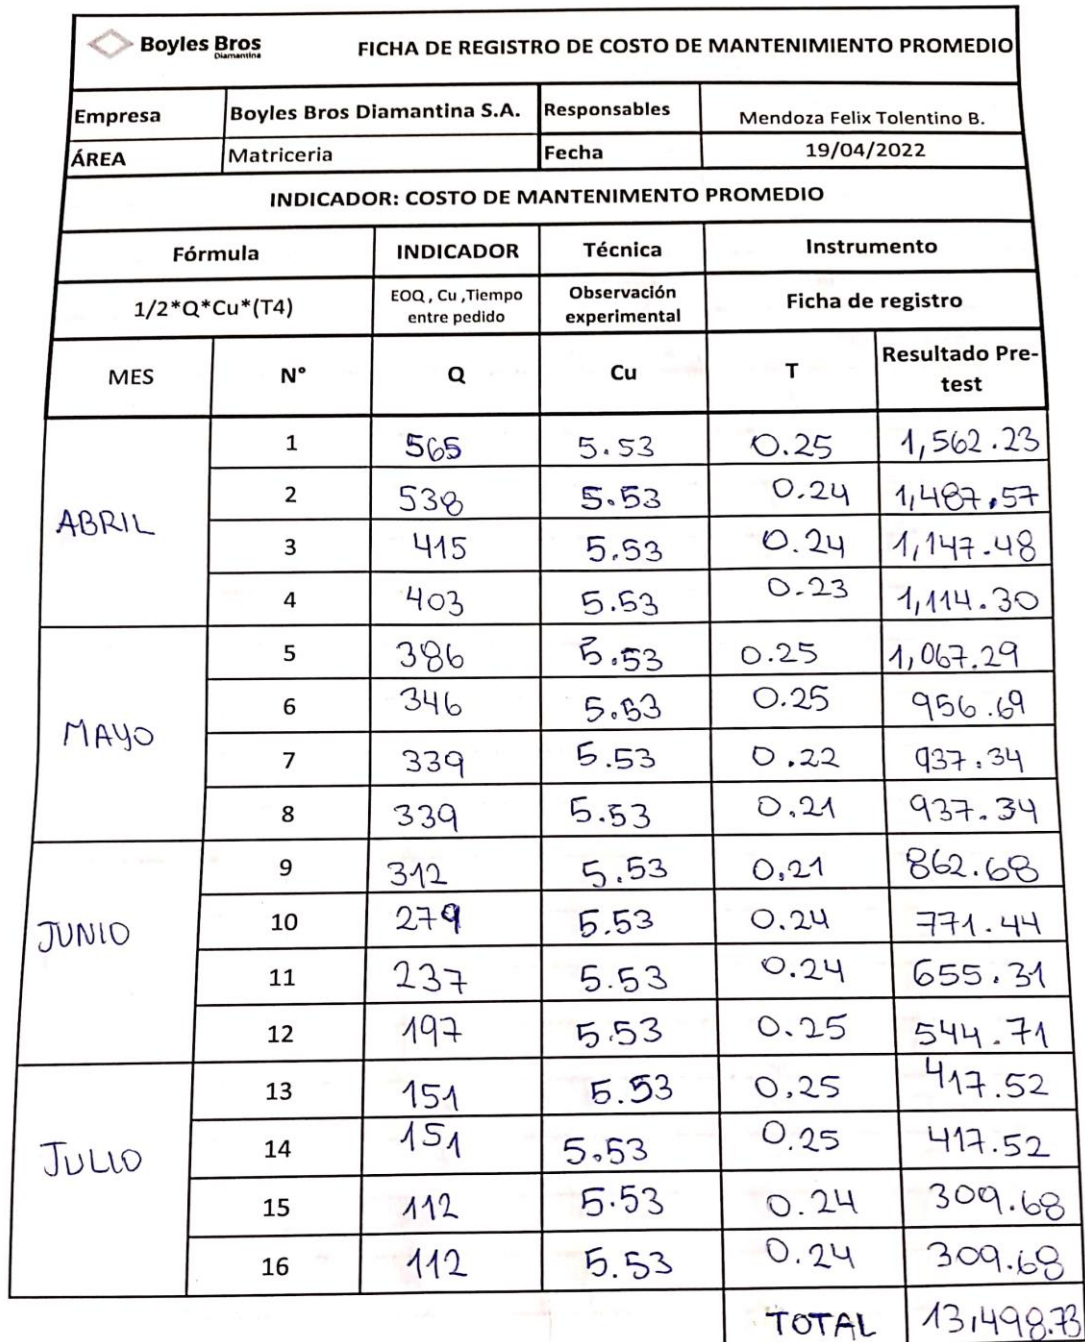 Boyles Bros
Diamantina
FICHA DE REGISTRO DE COSTO DE MANTENIMIENTO PROMEDIO
Empresa Boyles Bros Diamantina S.A. Responsables Mendoza Felix Tolentino B.
ÁREA Matriceria Fecha 19/04/2022
INDICADOR: COSTO DE MANTENIMENTO PROMEDIO
Fórmula INDICADOR Técnica Instrumento
1/2*Q*Cu*(T4) EOQ , Cu ,Tiempo entre pedido Observación experimental Ficha de registro
MES N° Q Cu T Resultado Pre-test
ABRIL
1 565 5.53 0.25 1,562.23
2 538 5.53 0.24 1,487.57
3 415 5.53 0.24 1,147.48
4 403 5.53 0.23 1,114.30
MAYO
5 386 5.53 0.25 1,067.29
6 346 5.53 0.25 956.69
7 339 5.53 0.22 937.34
8 339 5.53 0.21 937.34
JUNIO
9 312 5.53 0,21 862.68
10 279 5.53 0.24 771.44
11 237 5.53 0.24 655.31
12 197 5.53 0.25 544.71
JULIO
13 151 5.53 0,25 417.52
14 151 5.53 0.25 417.52
15 112 5.53 0.24 309.68
16 112 5.53 0.24 309.68
TOTAL 13,498.73